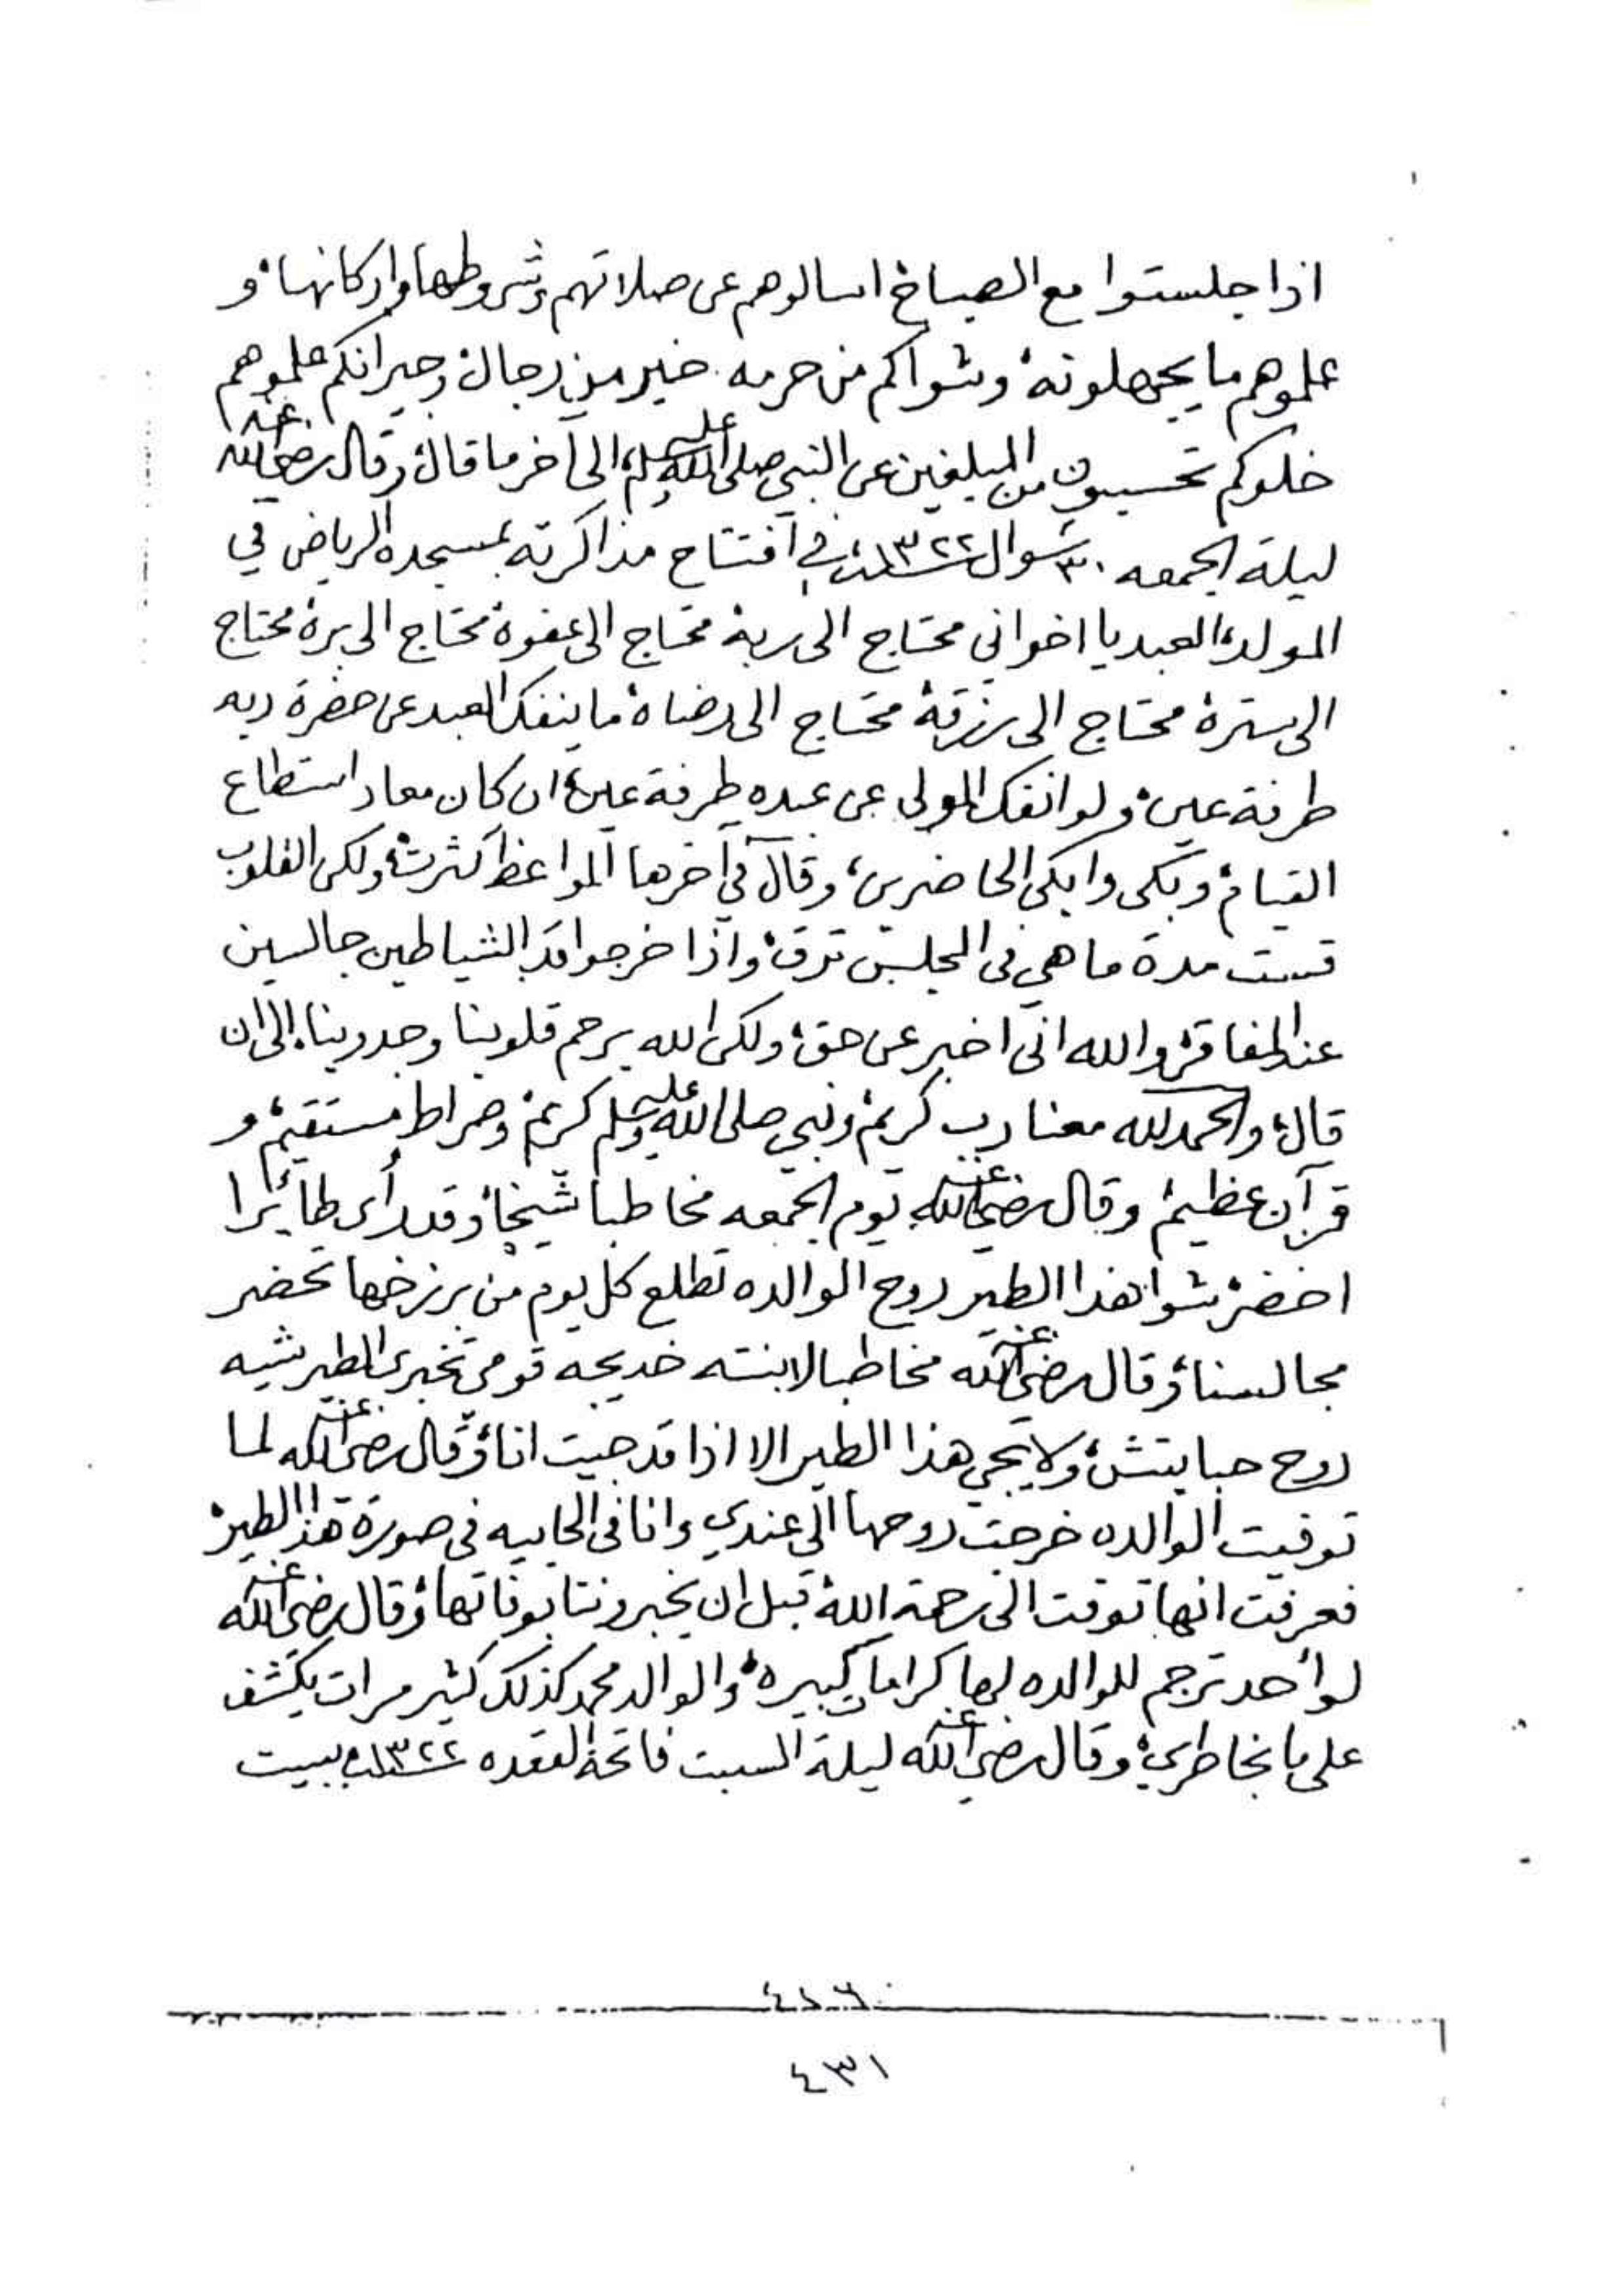 اذا جلستوا مع الصياخ اسالوهم عن صلاتهم وشروطها واركانها، و
علموهم ما يجهلونه، وشواكم من حرمه خير من رجال، وجيرانكم علموهم
خلوكم تحسبون من المبلغين عن النبي صلى الله عليه وسلم، الى آخر ما قال، وقال رضي الله عنه
ليلة الجمعه ٣٠ شوال سنة ١٣٢٢ في افتتاح مذاكرته بمسجده الرياض في
المولد، العبد يا اخواني محتاج الى ربه، محتاج الى عفوه، محتاج الى بره، محتاج
الى ستره، محتاج الى رزقه، محتاج الى رضاه، ما ينفك العبد عن حضرة ربه
طرفة عين، ولو انفك المولى عن عبده طرفة عين، ان كان معاد استطاع
القيام، وبكى وابكى الحاضرين، وقال في آخرها المواعظ كثرت، ولكن القلوب
قست مدة ما هي في المجلس ترق، واذا خرجوا قد الشياطين جالسين
عند المفاقر، والله اني اخبر عن حق، ولكن الله يرحم قلوبنا وجدوبنا، الى ان
قال، والحمد لله معنا رب كريم، ونبي صلى الله عليه وسلم كريم، وصراط مستقيم، و
قرآن عظيم، وقال رضي الله عنه يوم الجمعه مخاطبا شيخا، وقد رأى طائرا
اخضر، شوا هذا الطير روح الوالده تطلع كل يوم من برزخها تحضر
مجالسنا، وقال رضي الله عنه مخاطبا لابنته خديجه قومي تخبري الطير شيه
روح حبابتش، ولا يجي هذا الطير الا اذا قد جيت انا، وقال رضي الله عنه لما
توفيت الوالده خرجت روحها الى عندي وانا في الجابيه في صورة هذا الطير،
فعرفت انها توفت الى رحمة الله، قبل ان يخبروننا بوفاتها، وقال رضي الله عنه
لو أحد ترجم للوالده لها كرامات كبيره، والوالد محمد كذلك كثير مرات يكشف
على ما بخاطري، وقال رضي الله عنه ليلة السبت فاتحة القعده سنة ١٣٢٢ ببيت
٤٣١